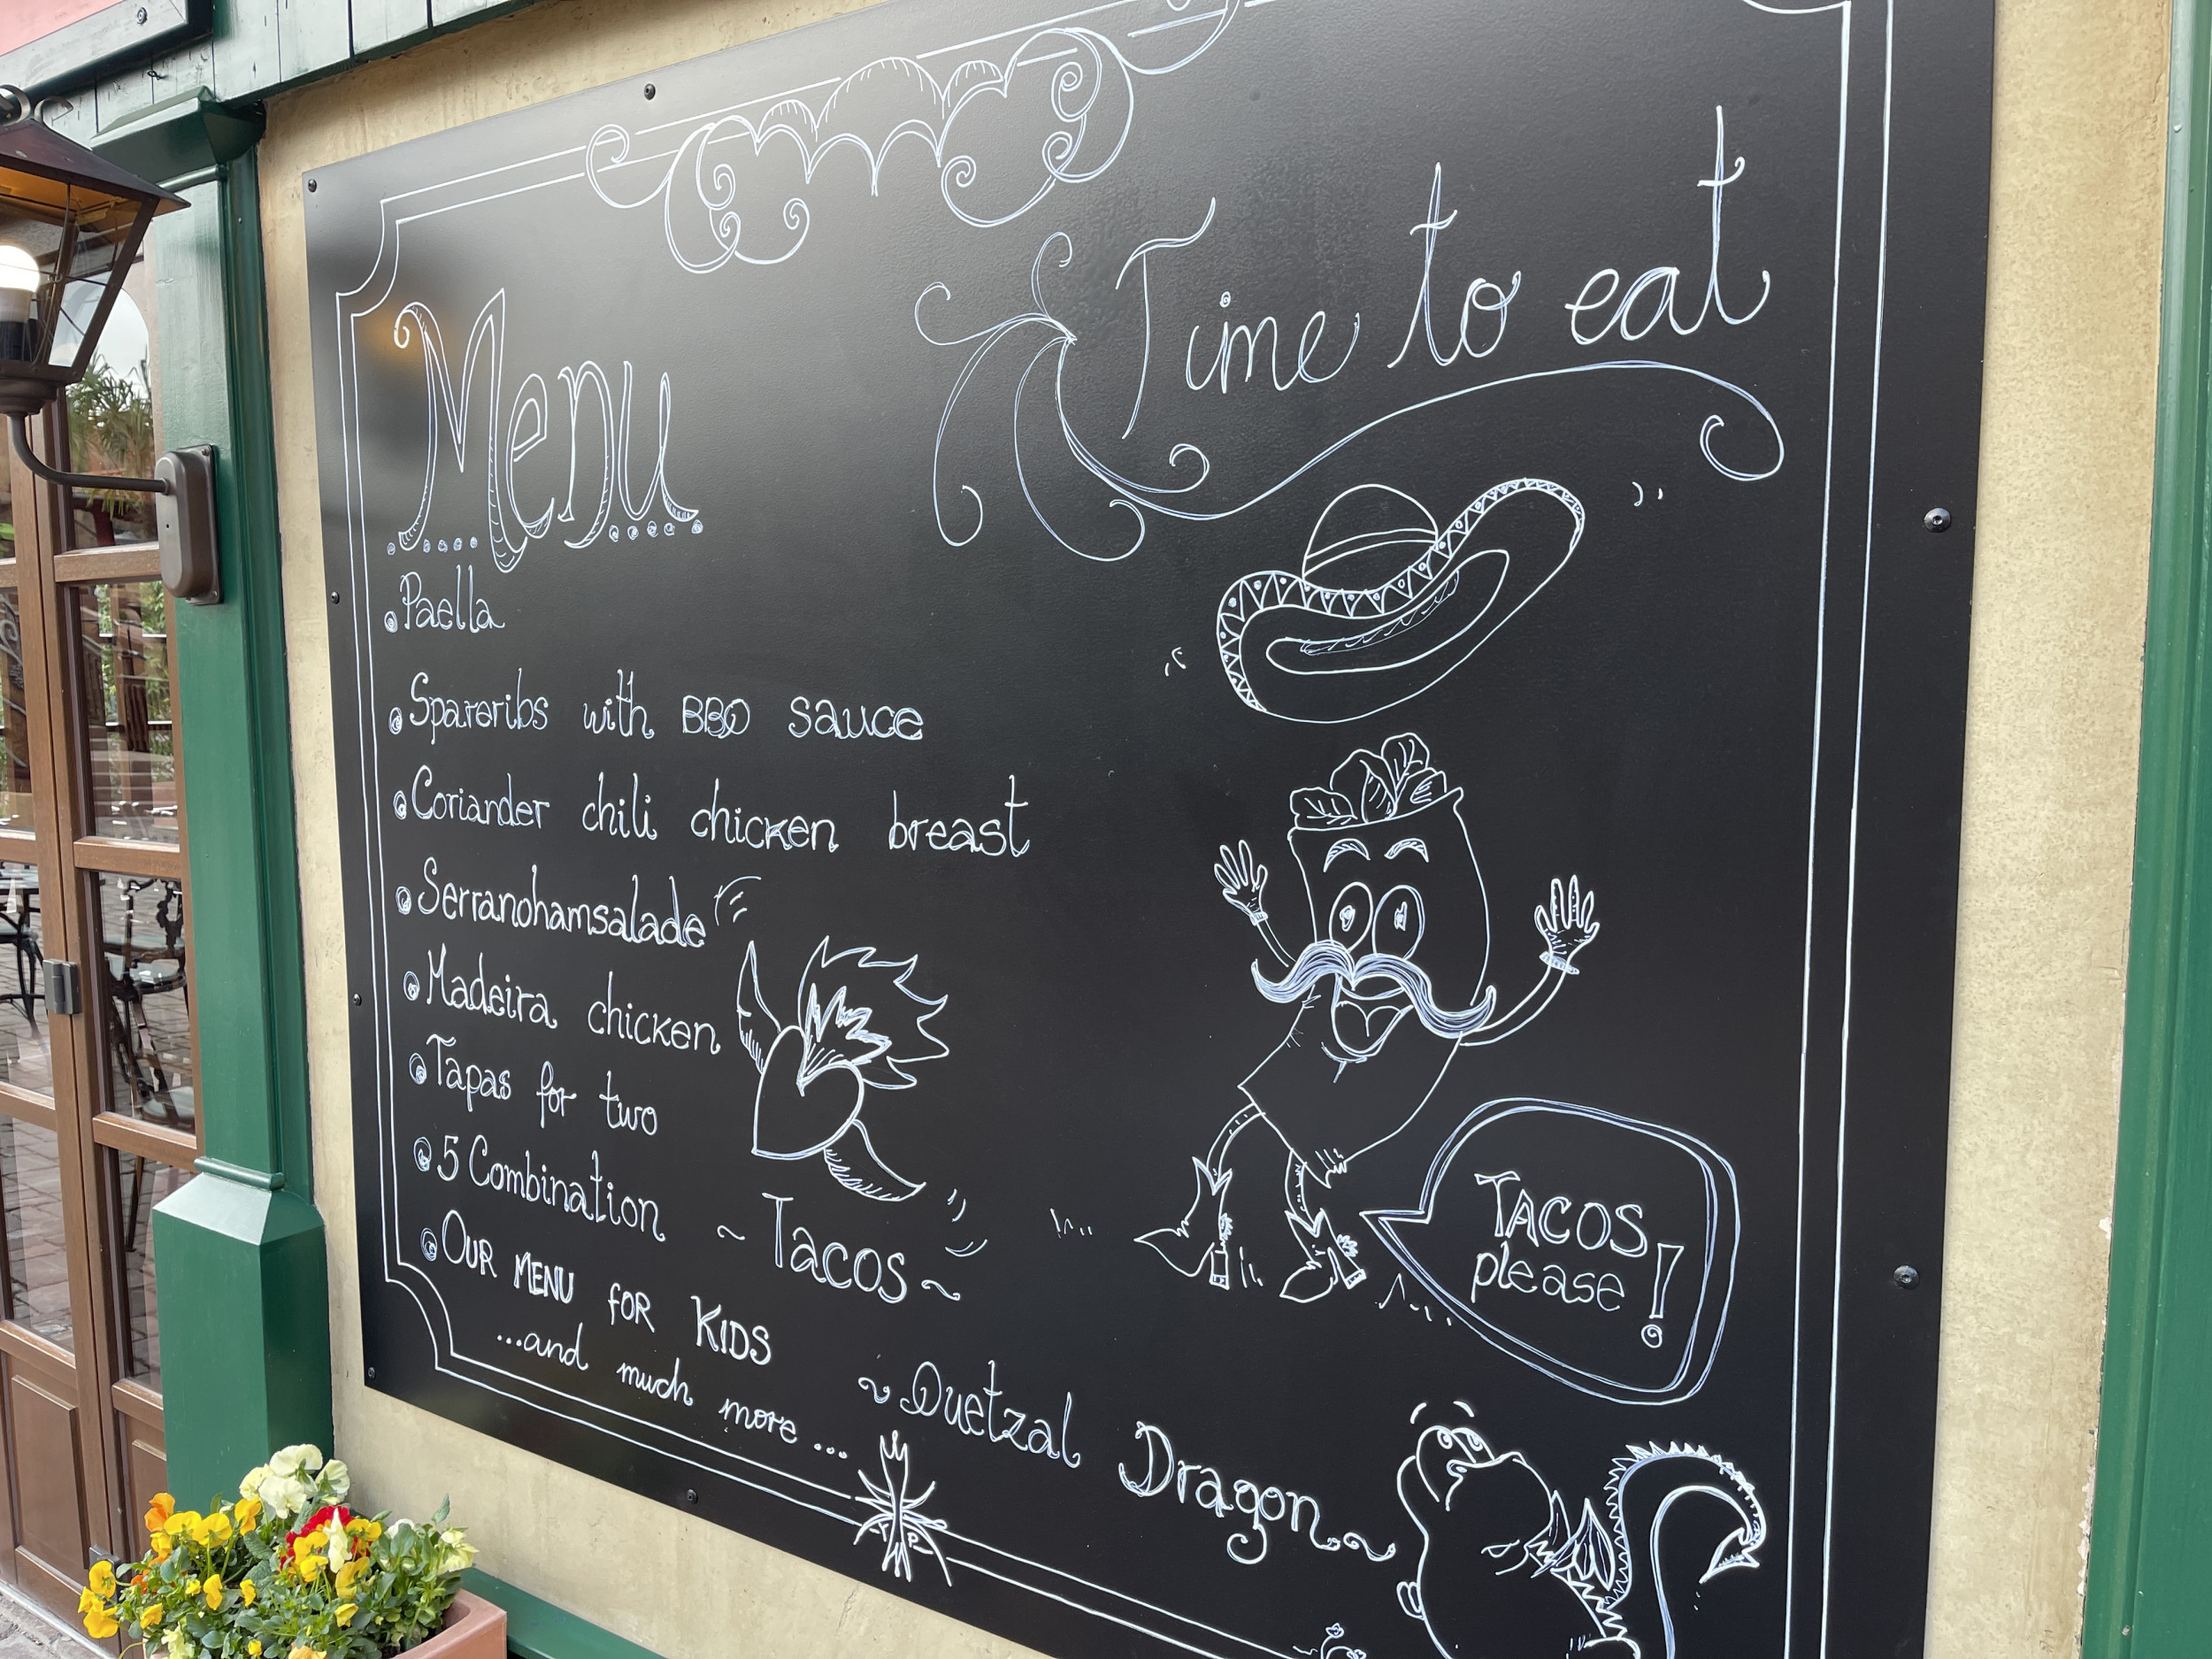 Time to eat
Menu
Paella
Spareribs with BBQ sauce
Coriander chili chicken breast
Serranohamsalade
Madeira chicken
Tapas for two
5 Combination ~ Tacos ~
OUR MENU FOR KIDS
...and much more...
TACOS
please!
~ Quetzal Dragon ~